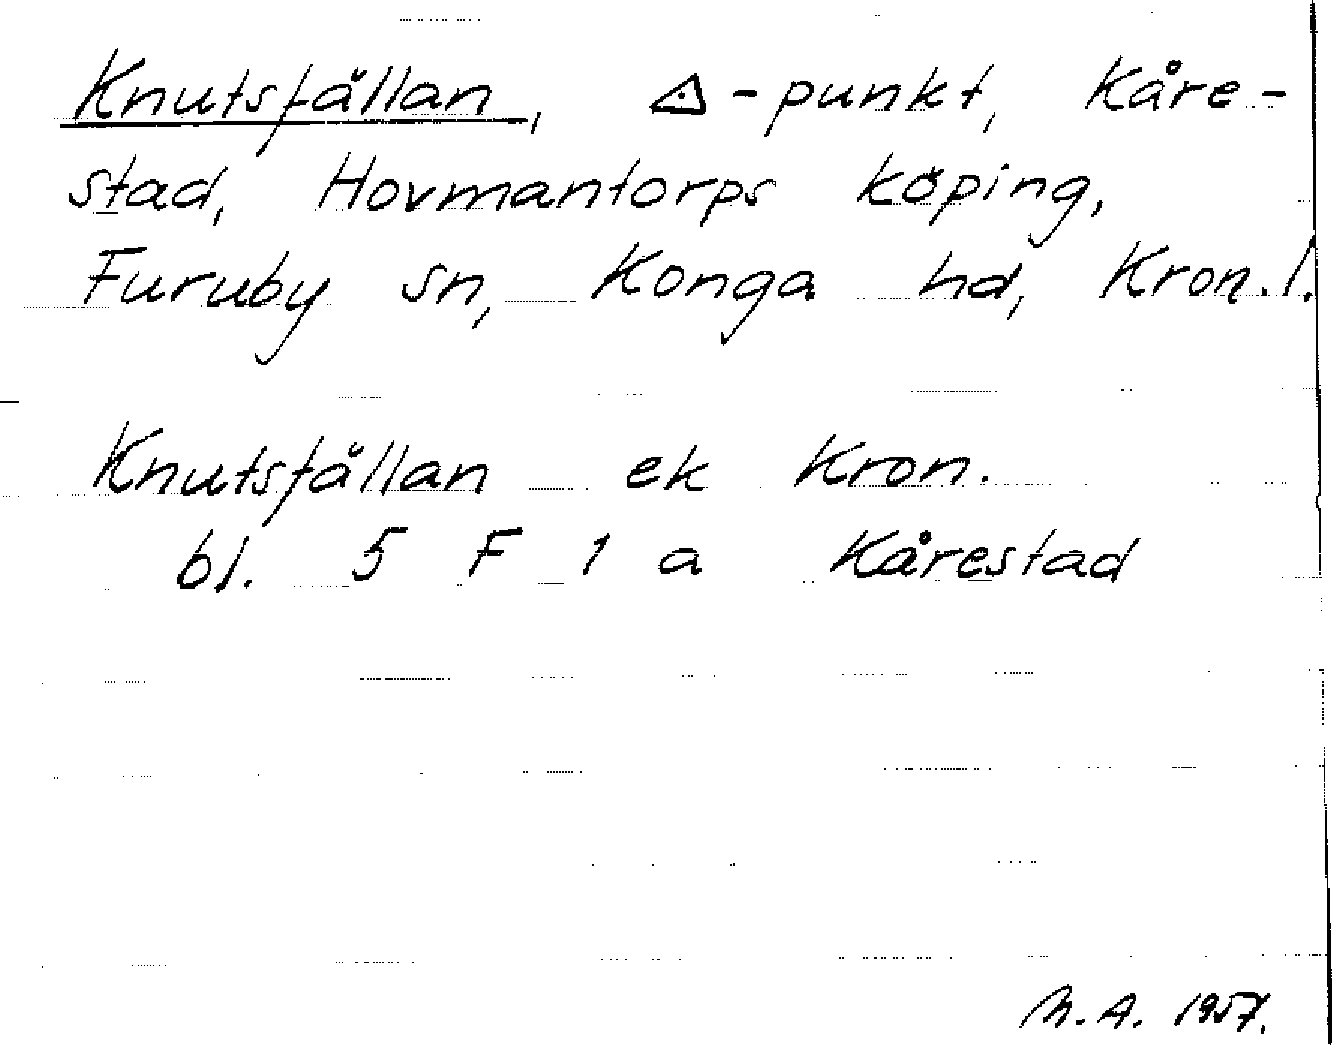 Knutsfällan, ◬-punkt, Kåre-
stad, Hovmantorps köping,
Furuby sn, Konga hd, Kron.l.
Knutsfällan ek Kron.
bl. 5 F 1 a Kårestad
M.A. 1957.